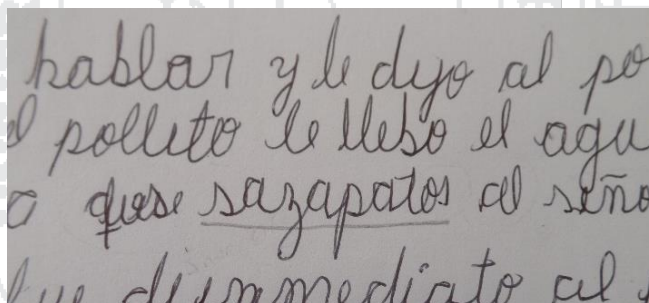 hablar y le dyo al po
pollito le llebo el agu
o quese sazapatos al seño
inmediato al